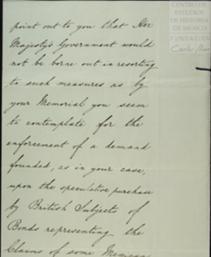 CENTRO DE
ESTUDIOS
DE HISTORIA
DE MEXICO
FUNDACIÓN
Carlos Slim
point out to you that Her
Majesty's Government would
not be borne out in resorting
to such measures as by
your Memorial you seem
to contemplate for the
enforcement of a demand
founded, as in your case,
upon the speculative purchase
by British Subjects of
Bonds representing the
Claims of some Mexican